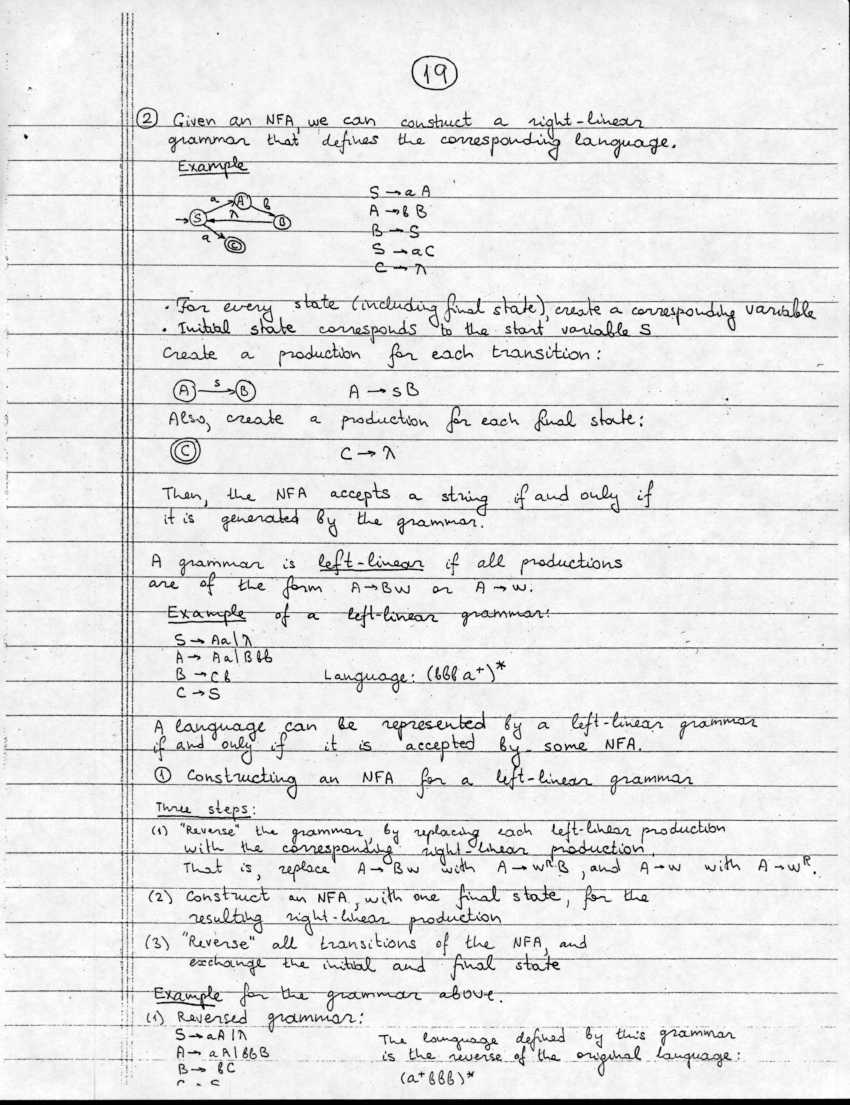 19
② Given an NFA, we can construct a right-linear
grammar that defines the corresponding language.
Example
S → aA
A → bB
B → S
S → aC
C → λ
a A b
S λ B
a C
· For every state (including final state), create a corresponding variable
· Initial state corresponds to the start variable S
Create a production for each transition:
A s B A → sB
Also, create a production for each final state:
C C → λ
Then, the NFA accepts a string if and only if
it is generated by the grammar.
A grammar is left-linear if all productions
are of the form A→Bw or A→w.
Example of a left-linear grammar:
S → Aa|λ
A → Aa|Bbb
B → Cb Language: (bbba⁺)*
C → S
A language can be represented by a left-linear grammar
if and only if it is accepted by some NFA.
① Constructing an NFA for a left-linear grammar
Three steps:
(1) "Reverse" the grammar, by replacing each left-linear production
with the corresponding right-linear production.
That is, replace A→Bw with A→wᴿB, and A→w with A→wᴿ.
(2) Construct an NFA, with one final state, for the
resulting right-linear production
(3) "Reverse" all transitions of the NFA, and
exchange the initial and final state
Example for the grammar above.
(1) Reversed grammar:
S → aA|λ The language defined by this grammar
A → aA|bbB is the reverse of the original language:
B → bC (a⁺bbb)*